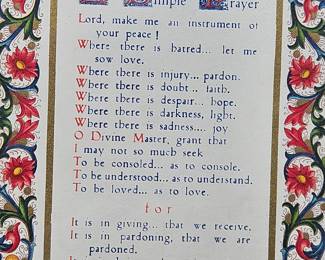 Simple Prayer
Lord, make me an instrument of
your peace!
Where there is hatred... let me
sow love.
Where there is injury... pardon.
Where there is doubt... faith.
Where there is despair... hope.
Where there is darkness, light.
Where there is sadness.... joy
O Divine Master, grant that
I may not so much seek
To be consoled... as to console.
To be understood... as to understand.
To be loved... as to love.
for
It is in giving... that we receive.
It is in pardoning, that we are
pardoned.